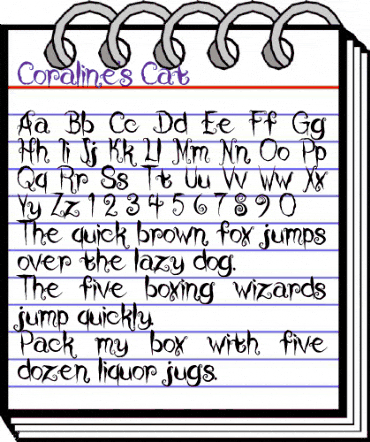 Coraline's Cat
Aa Bb Cc Dd Ee Ff Gg
Hh Ii Jj Kk Ll Mm Nn Oo Pp
Qq Rr Ss Tt Uu Vv Ww Xx
Yy Zz 1 2 3 4 5 6 7 8 9 0
The quick brown fox jumps
over the lazy dog.
The five boxing wizards
jump quickly.
Pack my box with five
dozen liquor jugs.